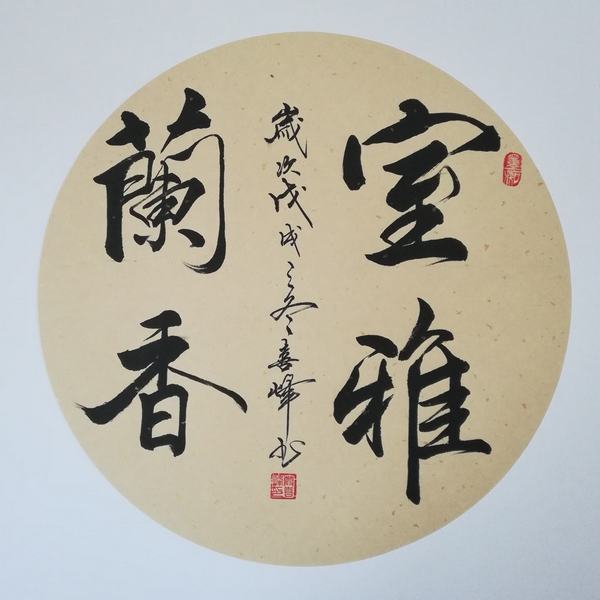 室雅
蘭香
歲次戊戌之冬喜峰书